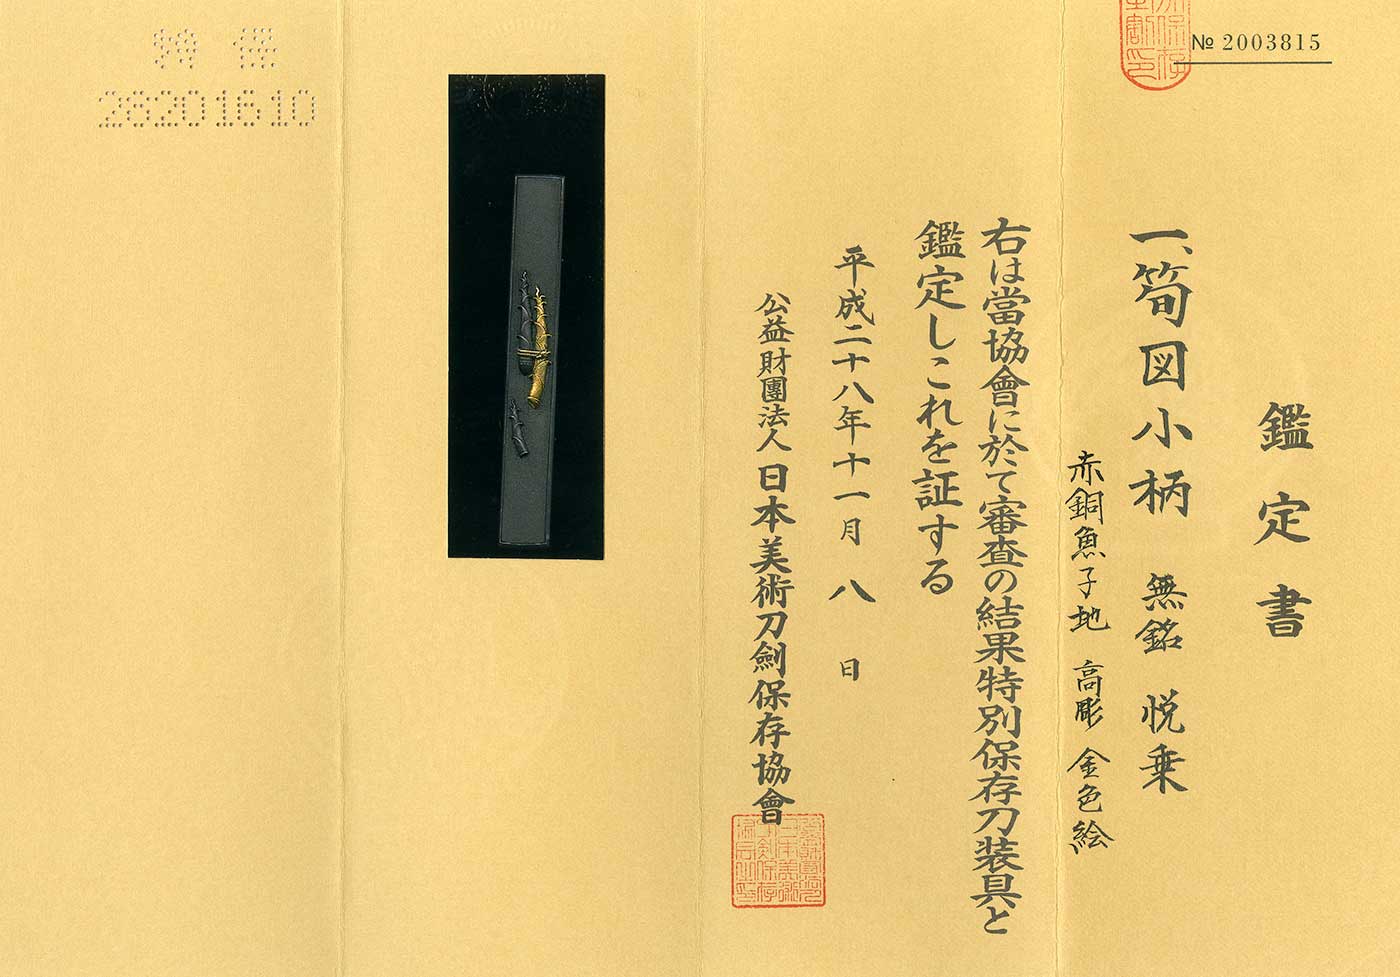 № 2003815
鑑定書
一、筍図小柄 無銘 悦乗
赤銅魚子地 高彫 金色絵
右は當協會に於て審査の結果特別保存刀装具と
鑑定しこれを証する
平成二十八年十一月八日
公益財團法人日本美術刀劍保存協會
特保
28201610